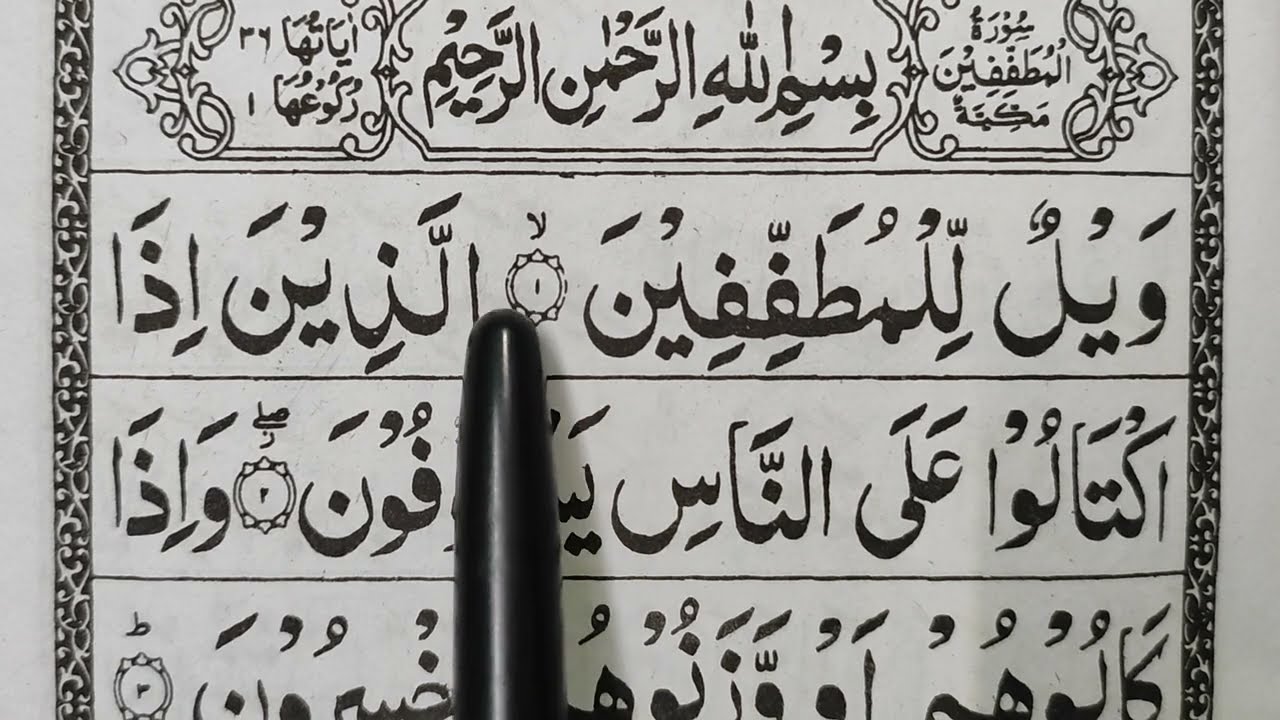 سُوْرَةُ
الْمُطَفِّفِيْنَ
مَكِّيَّةٌ
بِسْمِ اللّٰهِ الرَّحْمٰنِ الرَّحِيْمِ
اٰيَاتُهَا ٣٦
رُكُوْعُهَا ١
وَيْلٌ لِّلْمُطَفِّفِيْنَ ۙ‏ ﴿١﴾ الَّذِيْنَ اِذَا
اكْتَالُوْا عَلَى النَّاسِ فُوْنَ ﴿٢﴾ وَاِذَا
كَالُوْهُمْ اَوْ وَّزَنُوْهُمْ ﴿٣﴾